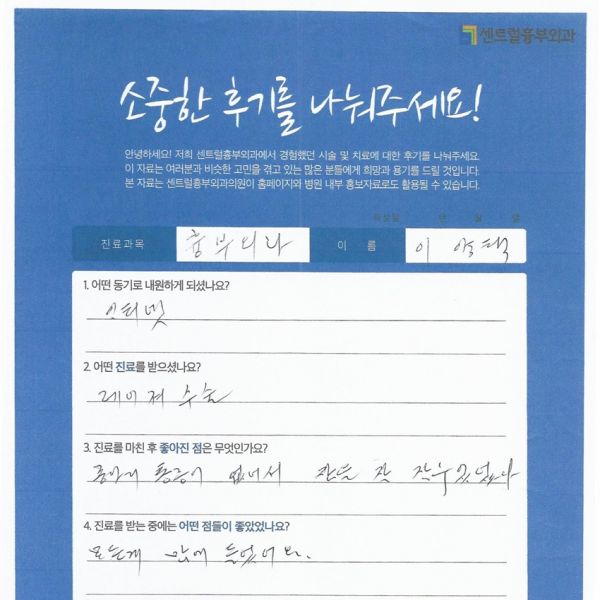 센트럴흉부외과
소중한 후기를 나눠주세요!
안녕하세요! 저희 센트럴흉부외과에서 경험했던 시술 및 치료에 대한 후기를 나눠주세요.
이 자료는 여러분과 비슷한 고민을 겪고 있는 많은 분들에게 희망과 용기를 드릴 것입니다.
본 자료는 센트럴흉부외과의원이 홈페이지와 병원 내부 홍보자료로도 활용될 수 있습니다.
작성일 년 월 일
진료과목 흉부외과 이 름 이
1. 어떤 동기로 내원하게 되셨나요?
인터넷
2. 어떤 진료를 받으셨나요?
레이져 수술
3. 진료를 마친 후 좋아진 점은 무엇인가요?
종아리 통증이 없어서 잠을 잘 잘수있었다
4. 진료를 받는 중에는 어떤 점들이 좋았었나요?
모든게 맘에 들었어요.